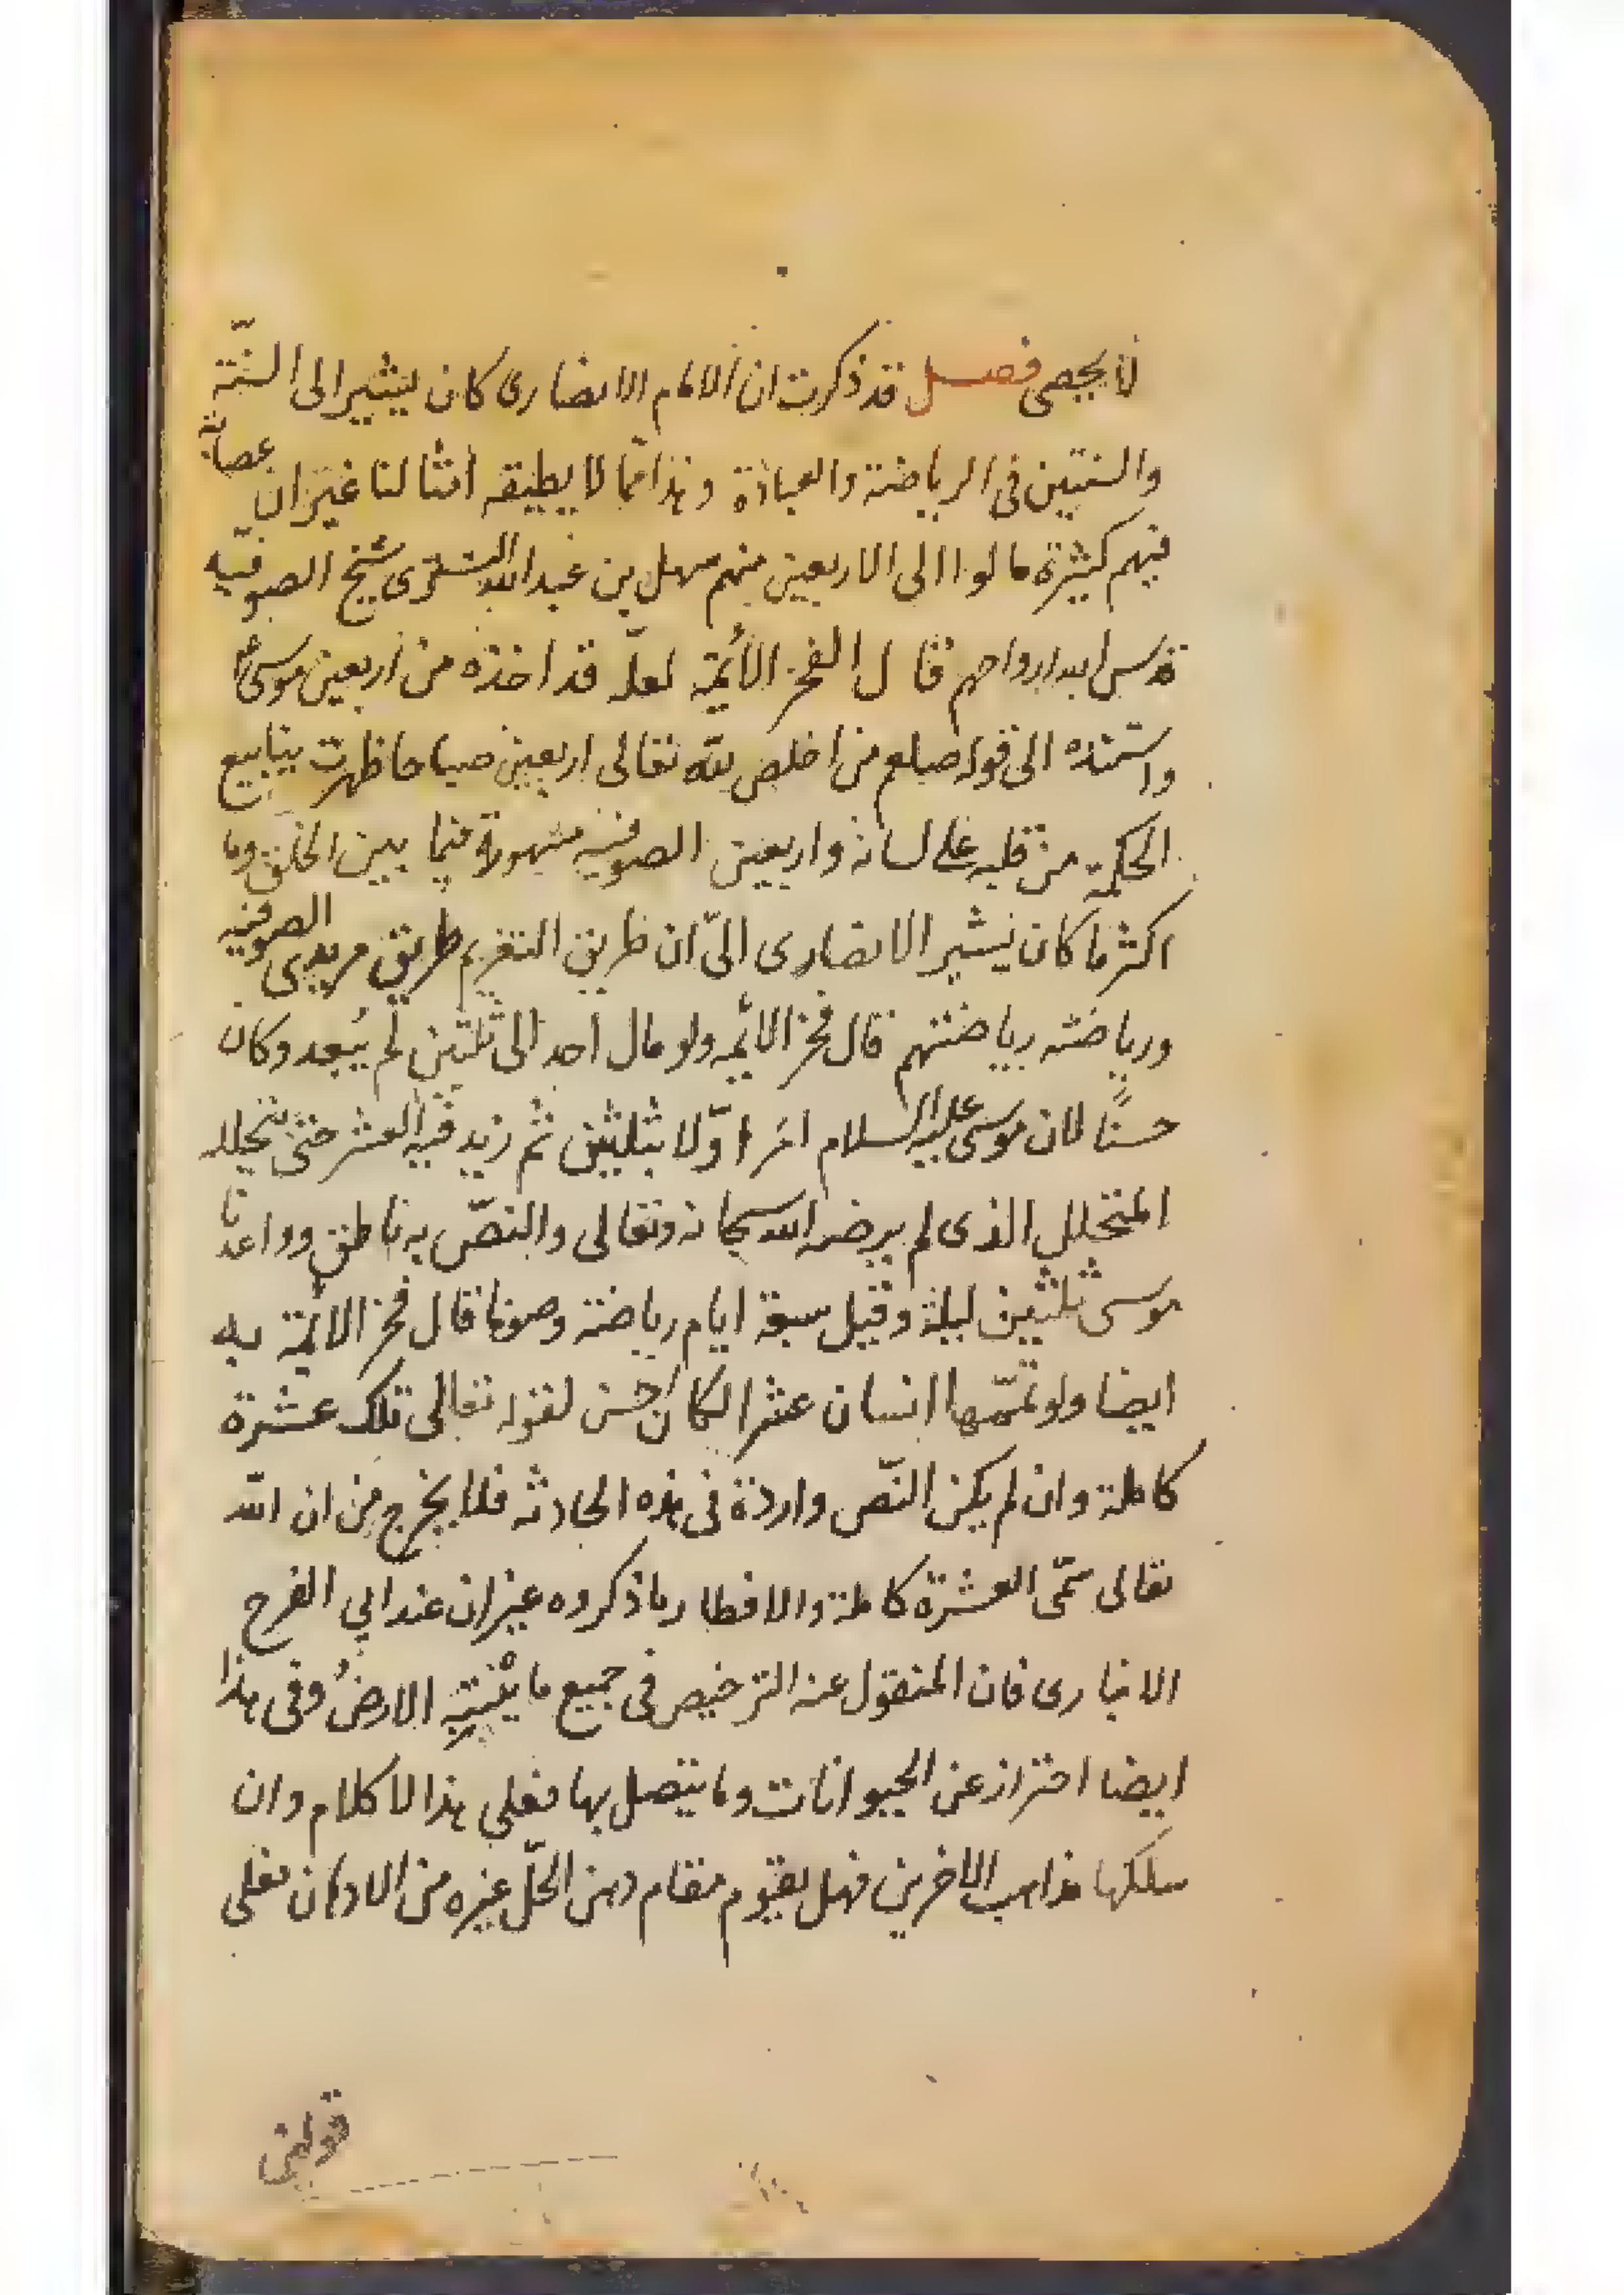 لا يحصى فصل قد ذكرت ان الامام الانصارى كان يشير الى السنة
والسنتين فى الرياضة والعبادة وهذا مما لا يطيقه امثالنا غير ان عصابة
فيهم كثيرة مالوا الى الاربعين منهم سهل بن عبد الله التسترى شيخ الصوفيه
قدس الله ارواحهم قال الفخر الأئمة لعله قد اخذه من اربعين موسى ع
واستنده الى قوله صلعم من اخلص لله تعالى اربعين صباحا ظهرت ينابيع
الحكمة من قلبه على لسانه واربعين الصوفيه مشهورة فيما بين الخلق وما
اكثر ما كان يشير الانصارى الىّ ان طريق التعزيم طريق مريدى الصوفيه
ورياضته رياضتهم قال فخر الائمه ولو مال احد الى ثلثين لم يبعد وكان
حسنًا لان موسى عليه السلام امر اوّلا بثلثين ثم زيد فيه العشر حتى تخلله
المتخلل الذى لم يرضه الله سبحانه وتعالى والنصّ به ناطق وواعدنا
موسى ثلثين ليلة وقيل سبعة ايام رياضة وصوما قال فخر الائمة به
ايضا ولو تمّمها انسان عشرا لكان احسن لقوله تعالى تلك عشرة
كاملة وان لم يكن النّص واردة فى هذه الحادثه فلا يخرج من ان الله
تعالى سمّى العشرة كاملة والافطار ما ذكروه غير ان عند ابي الفرج
الانبارى فان المنقول عنه الترخيص فى جميع ما ينبته الارضُ وفى هذا
ايضا احتراز عن الحيوانات وما يتصل بها فعلى هذا لا كلام وان
سلكها مذاهب الاخرين فهل يقوم مقام دهن الحلّ غيره من الادهان فعلى
قولين